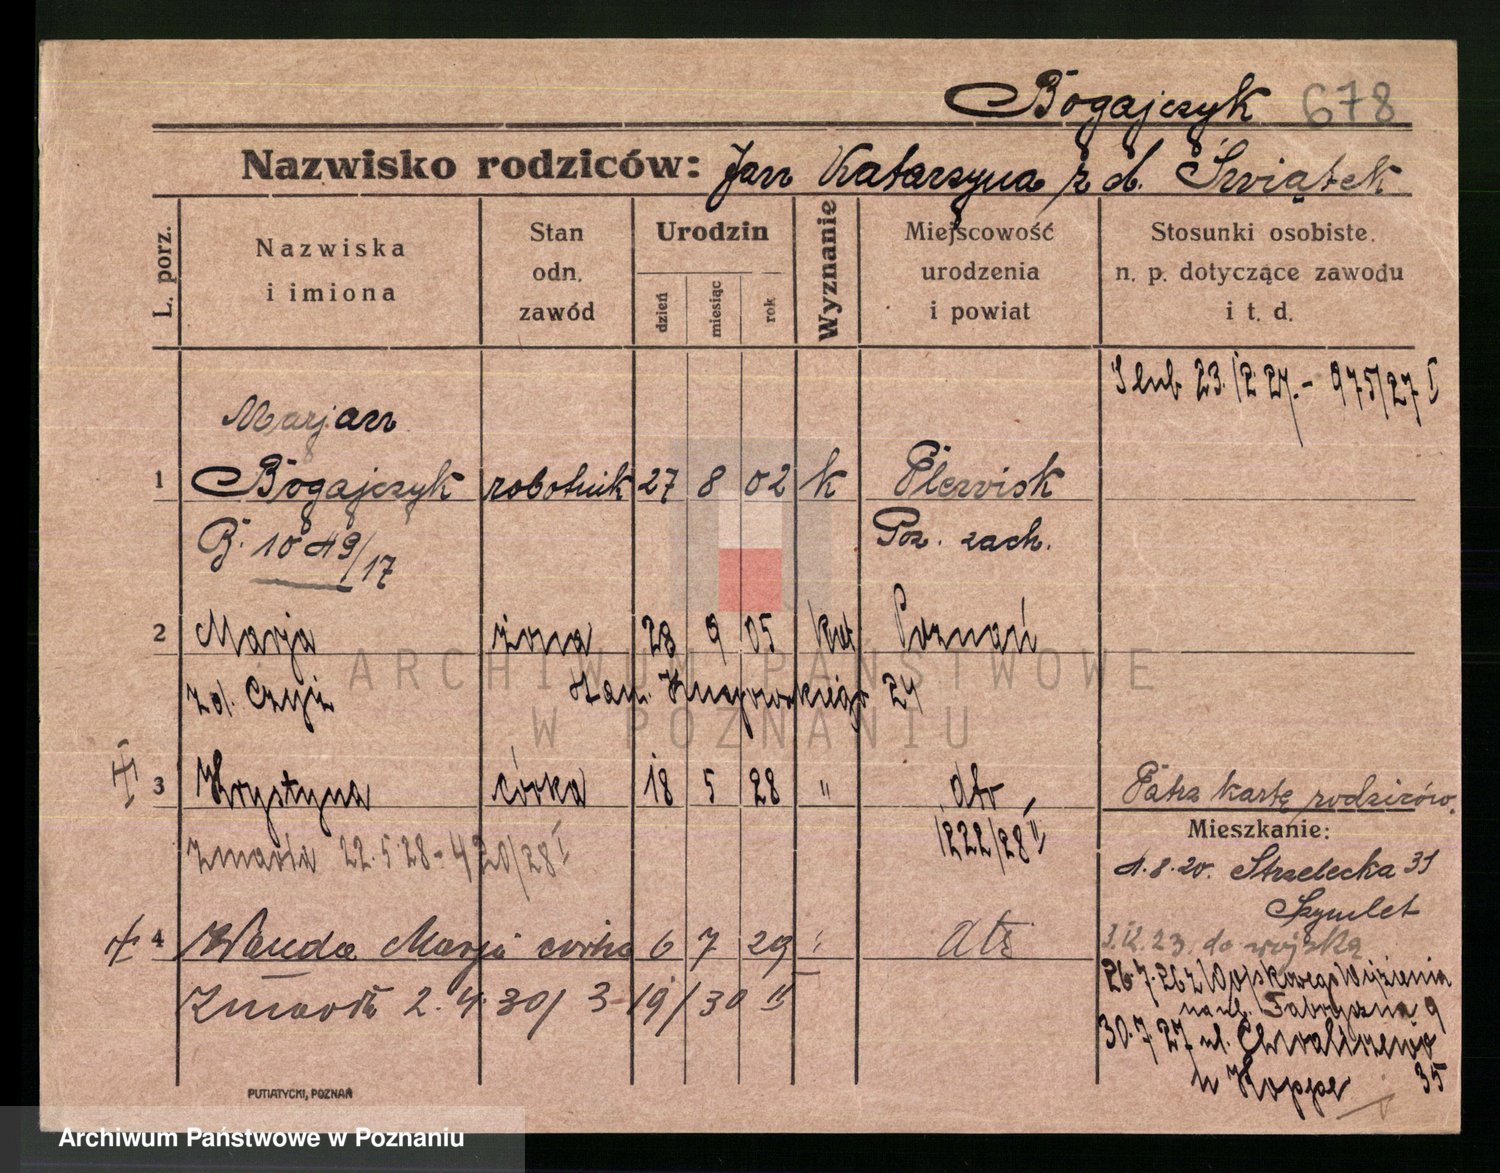 Bogajczyk 678
Nazwisko rodziców: Jan Katarzyna z d. Świątek
L. porz.
Nazwiska
i imiona
Stan
odn.
zawód
Urodzin
dzień
miesiąc
rok
Wyznanie
Miejscowość
urodzenia
i powiat
Stosunki osobiste,
n. p. dotyczące zawodu
i t. d.
Ślub 23./12.27.- 975/27 I
Marjan
1 Bogajczyk robotnik 27 8 02 k Plewisk
B. 1049/17 Poz. zach.
2 Marja żona 28 9 05 kat. Poznań
z d. Czyż 24
3 Krystyna córka 18 5 28 " dto
1222/28 II
Patrz kartę rodziców.
zmarła 22.5.28 - 420/28 I
Mieszkanie:
4.8.20. Strzelecka 31
4 Wanda Marja córka 6 7 29 " dto
23. do wojska
Zmarła 2.4.30/ 3 19/30 II
26.7.26 z Więzienia
na ul. Fabryczna 9
30.7.27 ul. Chwaliszewo
u Hoppe 35
PUTIATYCKI, POZNAŃ
ARCHIWUM PAŃSTWOWE
W POZNANIU
Archiwum Państwowe w Poznaniu